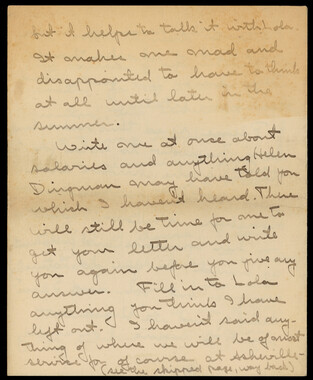 but it helps to talk it with Lola.
It makes me mad and
disappointed to have to think
at all until later in the
summer.
Write me at once about
salaries and anything Helen
Dingman may have told you
which I haven't heard. There
will still be time for me to
get your letter and write
you again before you give any
answer. Fill in to Lola
anything you think I have
left out. I haven't said any-
thing of where we will be of most
service for of course at Asheville-
(see the skipped page, way back)